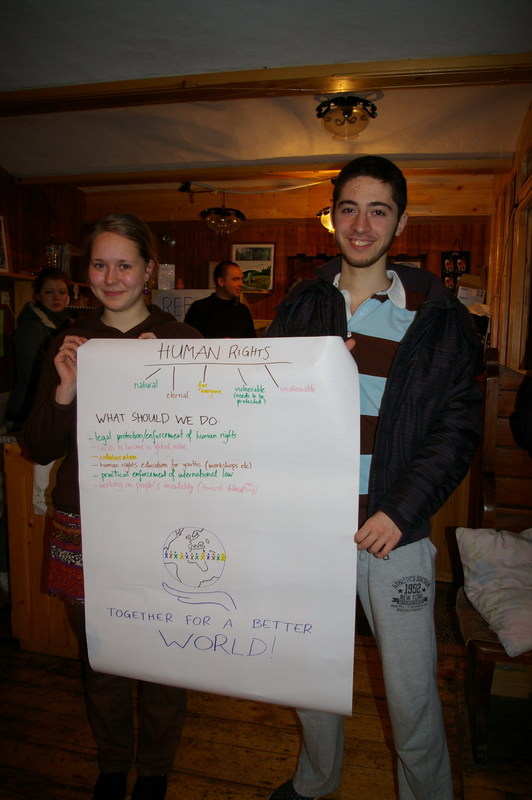 HUMAN RIGHTS
natural
eternal
for everyone
vulnerable
(needs to be protected)
WHAT SHOULD WE DO:
- legal protection/enforcement of human rights
- needs to become a global value
- collaboration
- human rights education for youths (workshops etc)
- practical enforcement of international law
- working on people's mentality
TOGETHER FOR A BETTER
WORLD!
REE
1992
NEW YORK